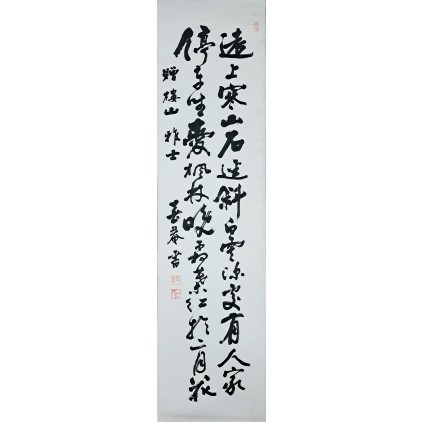 遠上寒山石逕斜白雲深處有人家
停車坐愛楓林晚霜葉紅於二月花
贈 山 雅士
菴書